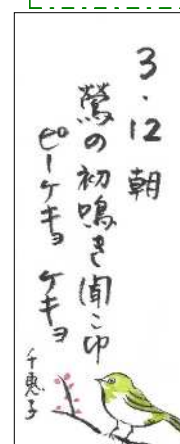 3・12 朝
鶯の初鳴き聞こゆ
ピーケキョ ケキョ
千恵子